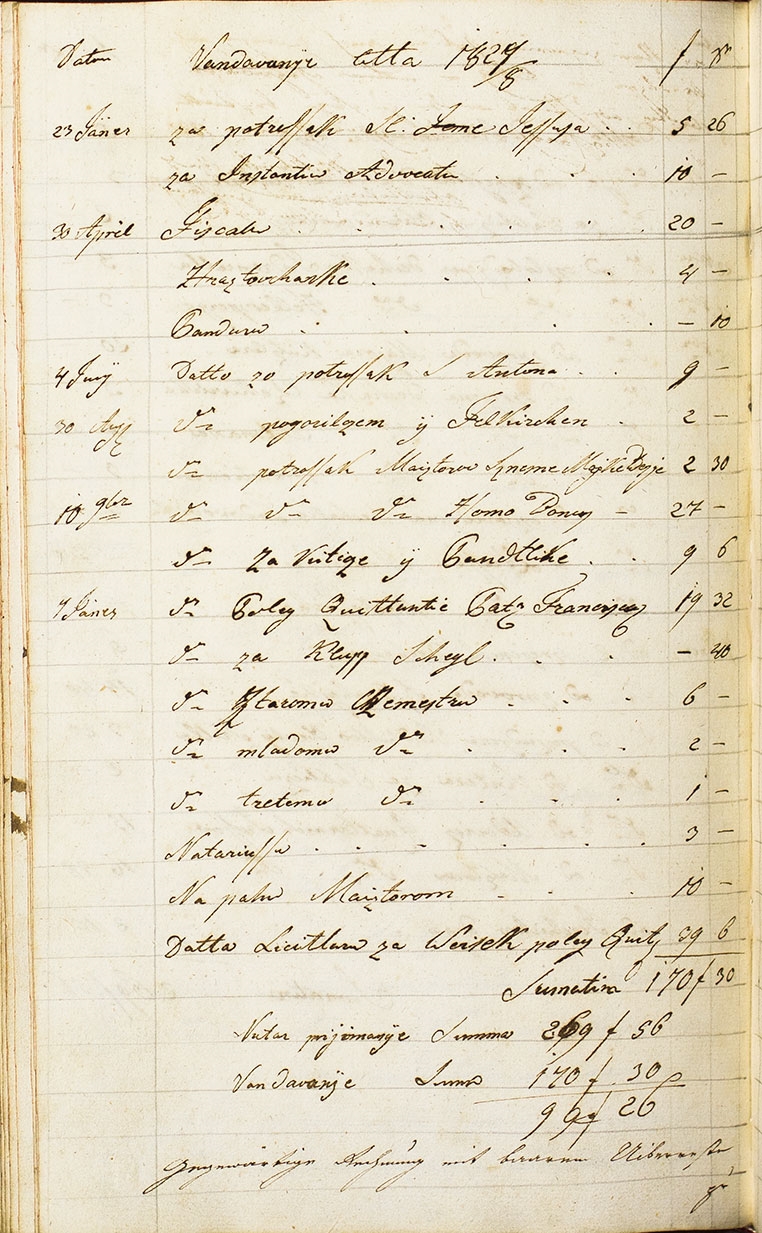 Datum Vandavanje litta 1827/8 f xr
23 Jäner za potressak Sl: Jeme Jessusa . . 5 26
za Instantiu Advocatu . . . 10 –
30 April Fiscalu . . . . . . 20 –
Hraztovchanke . . . . 4 –
Panduru . . . . – 10
4 Juny Datto zo potrossak S Antona . . 9 –
30 Aug dto pogorilczem ij Felkirchen . 2 –
dto potrossak Maiztorov Szneme Majke Bosje 2 30
10 9ber dto dto dto Homo – 27 –
dto za kutize ij Bandtlike . . 9 6
7 Jäner dto Poleg Quittantie Francis 19 32
dto za Klupp . . . – 40
dto Ztaromu Remestru . . . 6 –
dto mladomu dto . . . 2 –
dto tretemu dto . . . 1 –
Natariussu . . . . . . 3 –
Na palu Maiztorom . . . 10 –
Datta Licitlaru za Weisek poleg Quitz 39 6
Sumatira 170 f 30
Nutar prijimanje Summa 269 f 56
Vandavanje Sum 170 f 30
99 f 26
Gegenwärtige Rechnung mit baarem Uiberreste